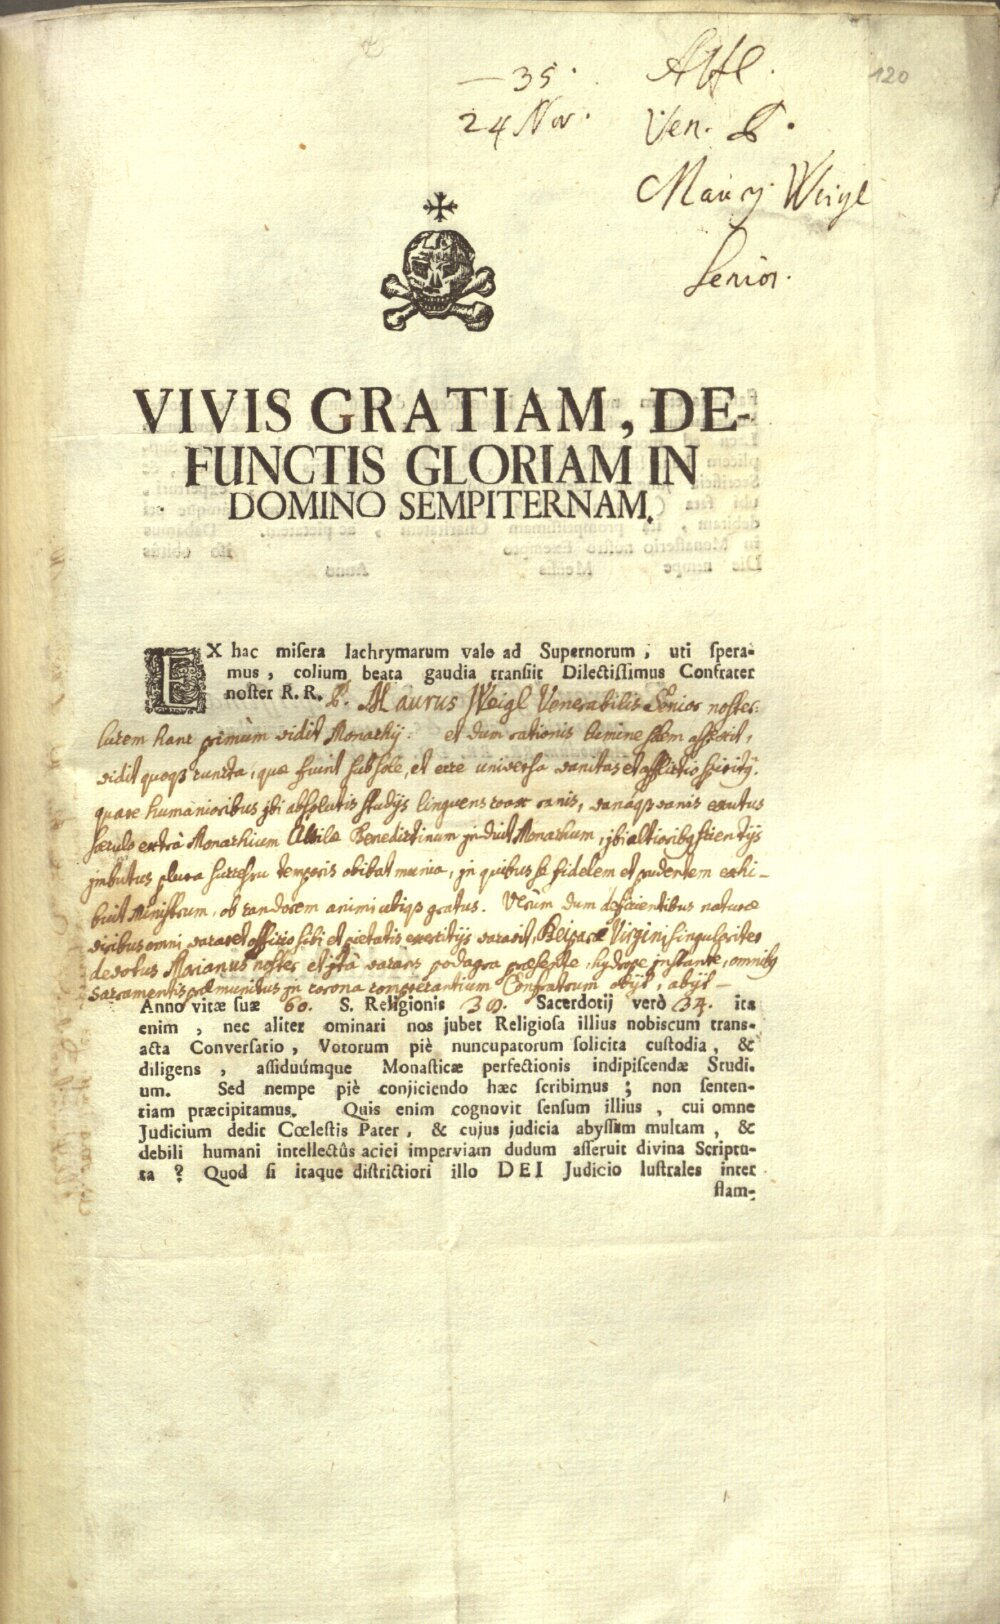 — 35.
24 Nov.
Attl.
Ven. P.
Maurg Weigl
Senior.
120
VIVIS GRATIAM, DE-
FUNCTIS GLORIAM IN
DOMINO SEMPITERNAM.
EX hac misera lachrymarum vale ad Supernorum, uti spera-
mus, colium beata gaudia transiit Dilectissimus Confrater
noster R. R. P. Maurus Weigl Venerabilis Senior noster.
lucem hanc primùm vidit Monachij. et dum rationis lumine
vidit quoqz cuncta, quae fiunt sub sole, et esse universa vanitas et afflictio
quare humanioribus jbi absolutis studijs linquens coax ranis, vanáqz vanis exutus
saeculo extrà Monachium Attilae Benedictinum jnduit Monachum, jbi altioribq scientijs
jmbutus plura successu temporis obibat munia, jn quibus se fidelem et prudentem exhi-
buit Ministrum, ob candorem animi ubiqz gratus. Verùm dum deficientibus naturae
viribus omni vacaret officio sibi et pietatis exercitijs vacavit, Deiparae Virgini singulariter
devotus Marianus noster et jta vacans podagra praesente, hydrope jnstante, omnibq
Sacramentis praemunitus jn corona comprecantium Confratrum obijt, abijt —
Anno vitæ suæ 60. S. Religionis 39. Sacerdotij verò 34. ita
enim, nec aliter ominari nos jubet Religiosa illius nobiscum trans-
acta Conversatio, Votorum piè nuncupatorum solicita custodia, &
diligens, assiduúmque Monasticæ perfectionis indipiscendæ Studi-
um. Sed nempe piè conjiciendo hæc scribimus; non senten-
tiam præcipitamus. Quis enim cognovit sensum illius, cui omne
Judicium dedit Cœlestis Pater, & cujus judicia abyssum multam, &
debili humani intellectûs aciei imperviam dudum asseruit divina Scriptu-
ra? Quod si itaque districtiori illo DEI Judicio lustrales inter
flam-